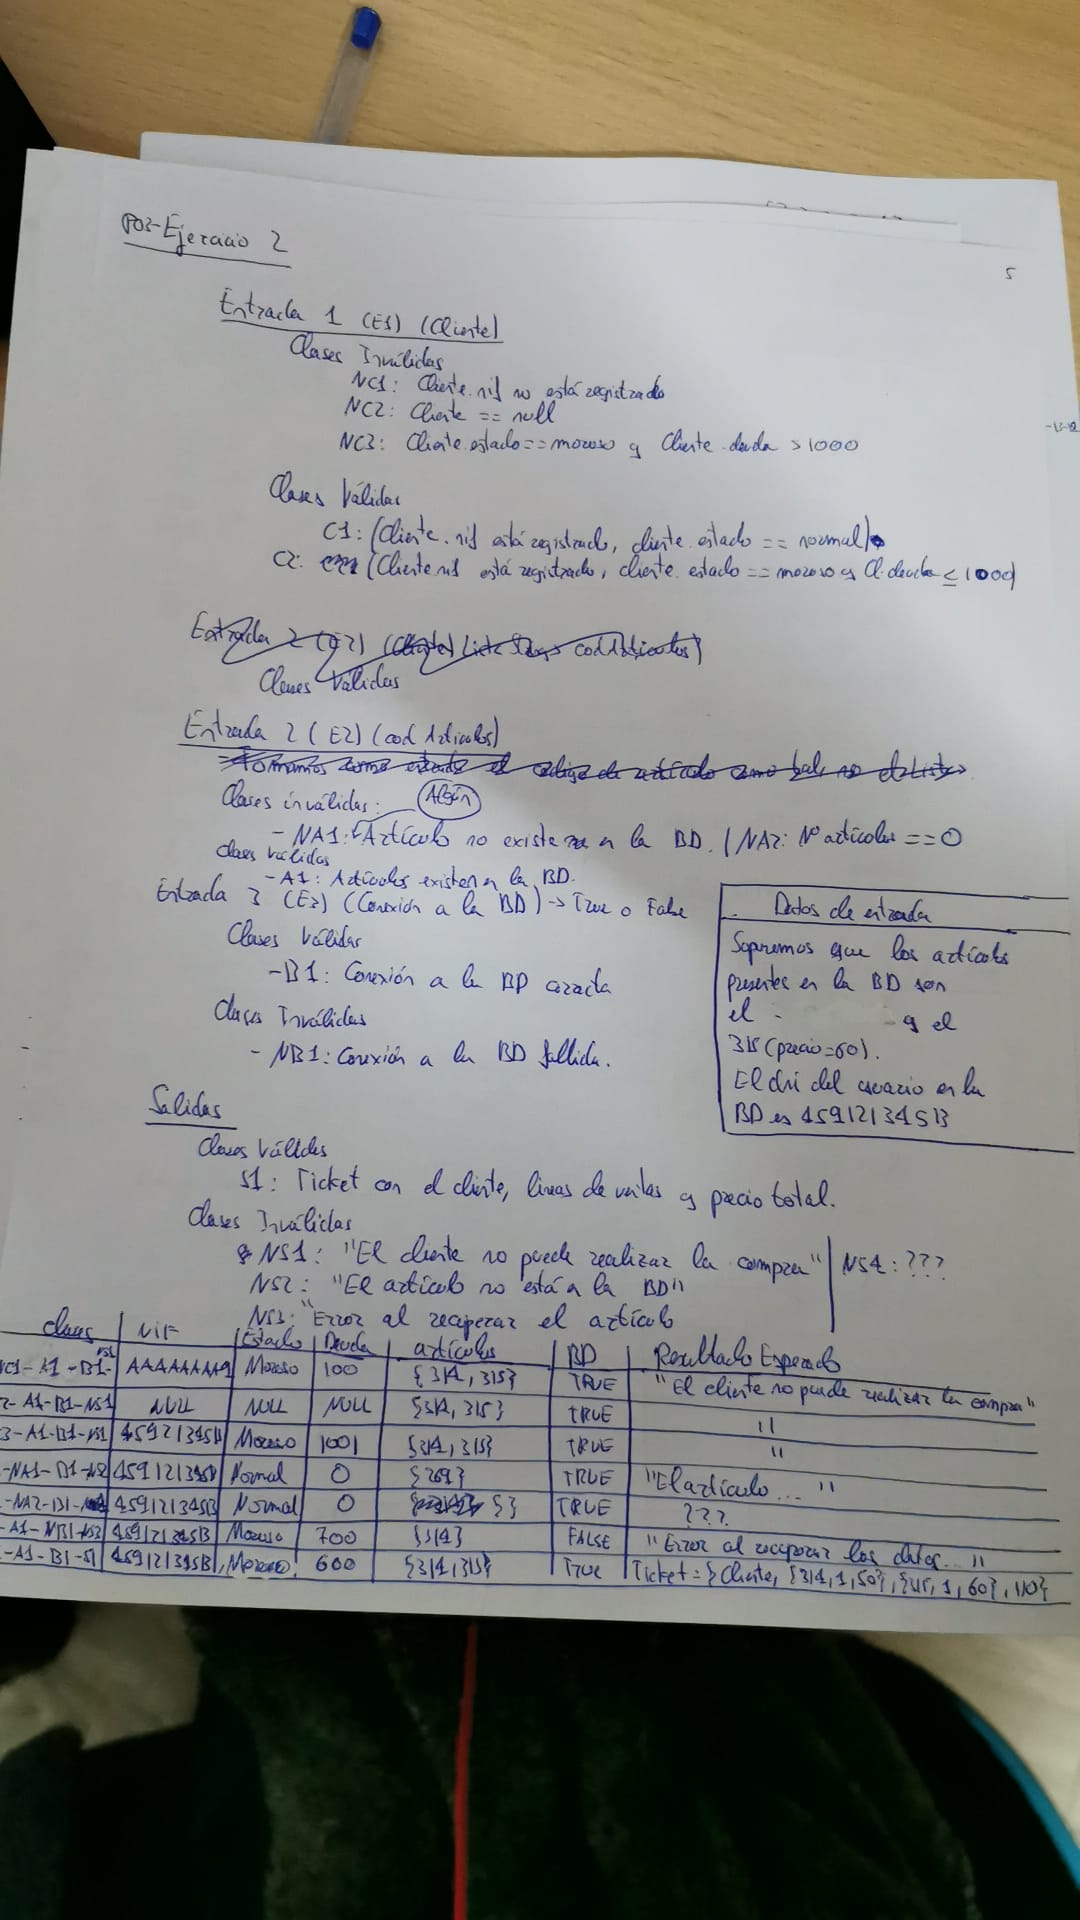 P03-Ejercicio 2
5
Entrada 1 (E1) (Cliente)
Clases Inválidas
NC1: Cliente.nif no está registrado
NC2: Cliente == null
NC3: Cliente.estado == moroso y Cliente.deuda > 1000
Clases Válidas
C1: (Cliente.nif está registrado, cliente.estado == normal)
C2: (Cliente.nif está registrado, cliente.estado == moroso y Cl.deuda ≤ 1000)
Entrada 2 (E2)
Clases Válidas
Entrada 2 (E2) (cod Artículos)
Clases inválidas: Algún
- NA1: Artículo no existe en la BD. / NA2: Nº artículos == 0
Clases válidas
- A1: Artículos existen en la BD.
Entrada 3 (E3) (Conexión a la BD) -> True o False
Clases Válidas
- B1: Conexión a la BD correcta
Clases Inválidas
- NB1: Conexión a la BD fallida.
Datos de entrada
Supremos que los artículos
presentes en la BD son
el y el
315 (precio=60).
El dni del usuario en la
BD es 45912134513
Salidas
Clases válidas
S1: Ticket con el cliente, líneas de ventas y precio total.
Clases Inválidas
NS1: "El cliente no puede realizar la compra" | NS4: ???
NS2: "El artículo no está en la BD"
NS3: "Error al recuperar el artículo
Clases | NIF | Estado | Deuda | artículos | BD | Resultado Esperado
NC1-A1-B1-NS1 | Moroso | 100 | {314, 315} | TRUE | "El cliente no puede realizar la compra"
2-A1-B1-NS1 | NULL | NULL | NULL | {314, 315} | TRUE | "
3-A1-B1-NS1 | Moroso | 1001 | {314, 315} | TRUE | "
-NA1-B1-NS2 | Normal | 0 | {269} | TRUE | "El artículo... "
-NA2-B1- | 459121345B | Normal | 0 | {} | TRUE | ???
-A1-NB1-NS3 | 459121345B | Moroso | 700 | {314} | FALSE | "Error al recuperar los datos..."
-A1-B1-S1 | 459121345B | Moroso | 600 | {314, 315} | True | Ticket = {Cliente, {314, 1, 50}, {315, 1, 60}, 110}